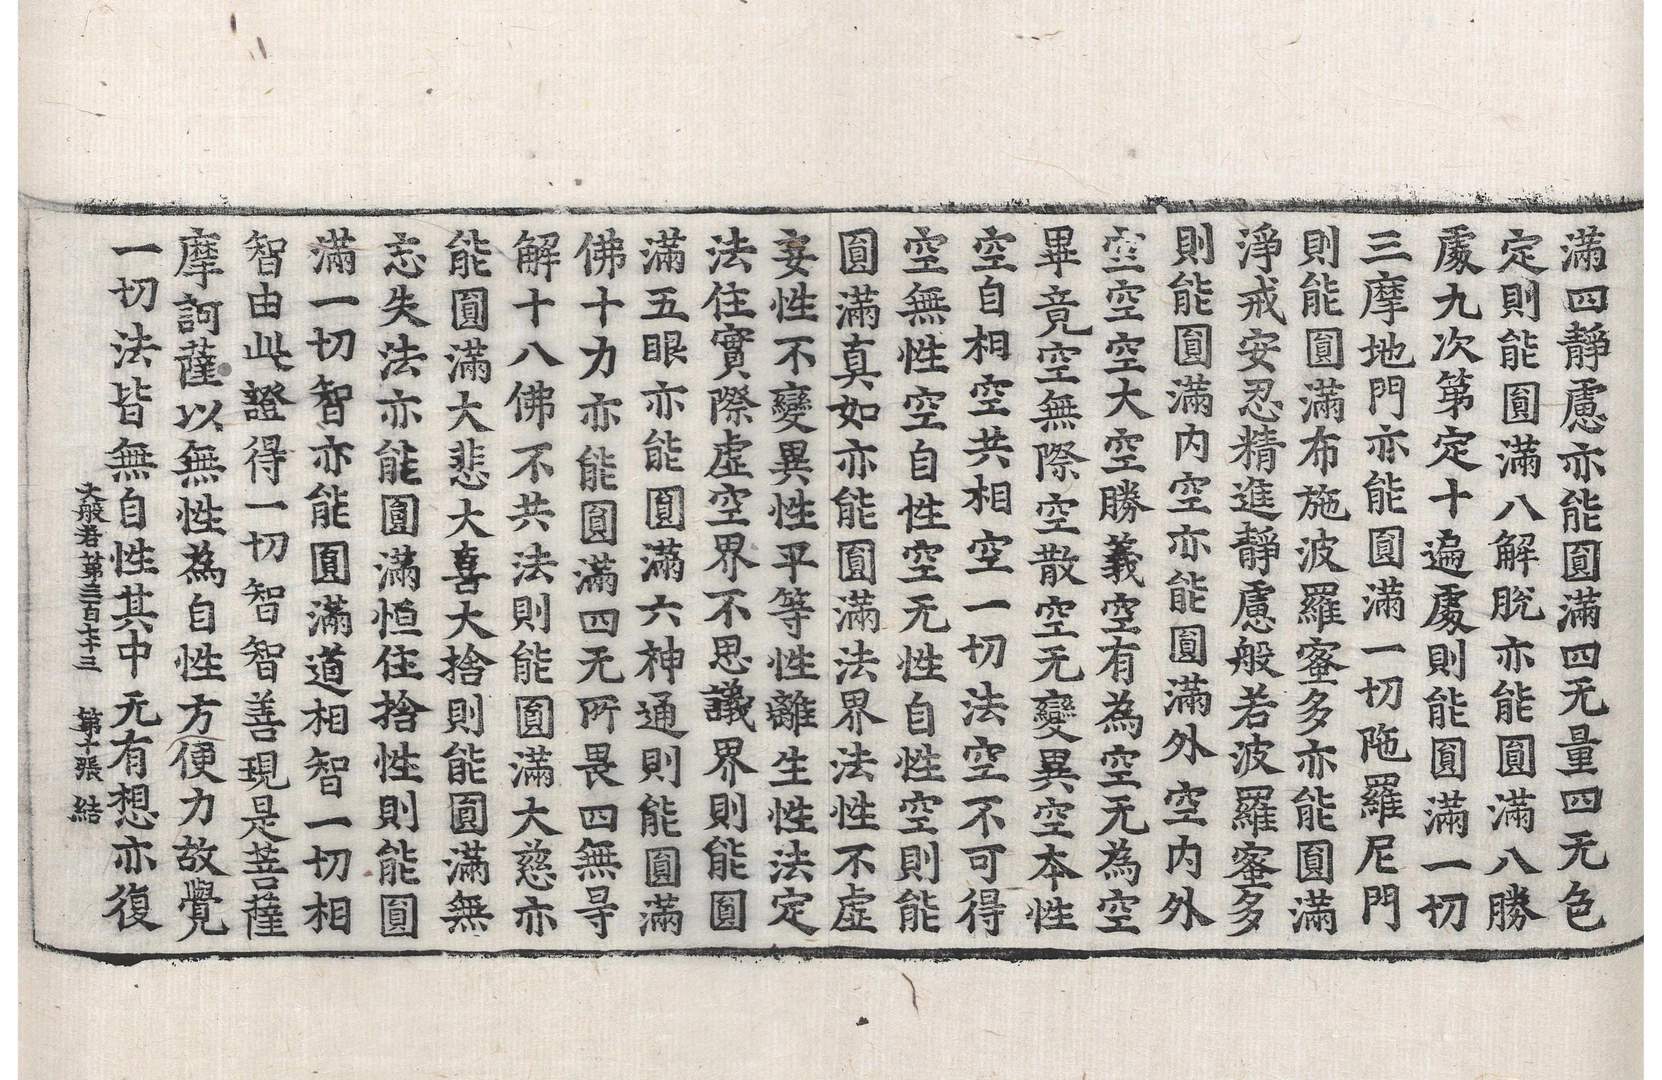 滿四靜慮亦能圓滿四无量四无色
定則能圓滿八解脫亦能圓滿八勝
處九次第定十遍處則能圓滿一切
三摩地門亦能圓滿一切陁羅尼門
則能圓滿布施波羅蜜多亦能圓滿
淨戒安忍精進靜慮般若波羅蜜多
則能圓滿內空亦能圓滿外空內外
空空空大空勝義空有為空无為空
畢竟空無際空散空无變異空本性
空自相空共相空一切法空不可得
空無性空自性空无性自性空則能
圓滿真如亦能圓滿法界法性不虛
妄性不變異性平等性離生性法定
法住實際虛空界不思議界則能圓
滿五眼亦能圓滿六神通則能圓滿
佛十力亦能圓滿四无所畏四無㝵
解十八佛不共法則能圓滿大慈亦
能圓滿大悲大喜大捨則能圓滿無
忘失法亦能圓滿恒住捨性則能圓
滿一切智亦能圓滿道相智一切相
智由此證得一切智智善現是菩薩
摩訶薩以無性為自性方便力故覺
一切法皆無自性其中无有想亦復
大般若第三百七十三 第十張 結